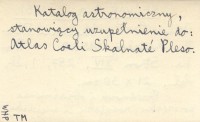 Katalog astronomiczny,
stanowiący uzupełnienie do:
Atlas Coeli Skalnaté Pleso.
TM